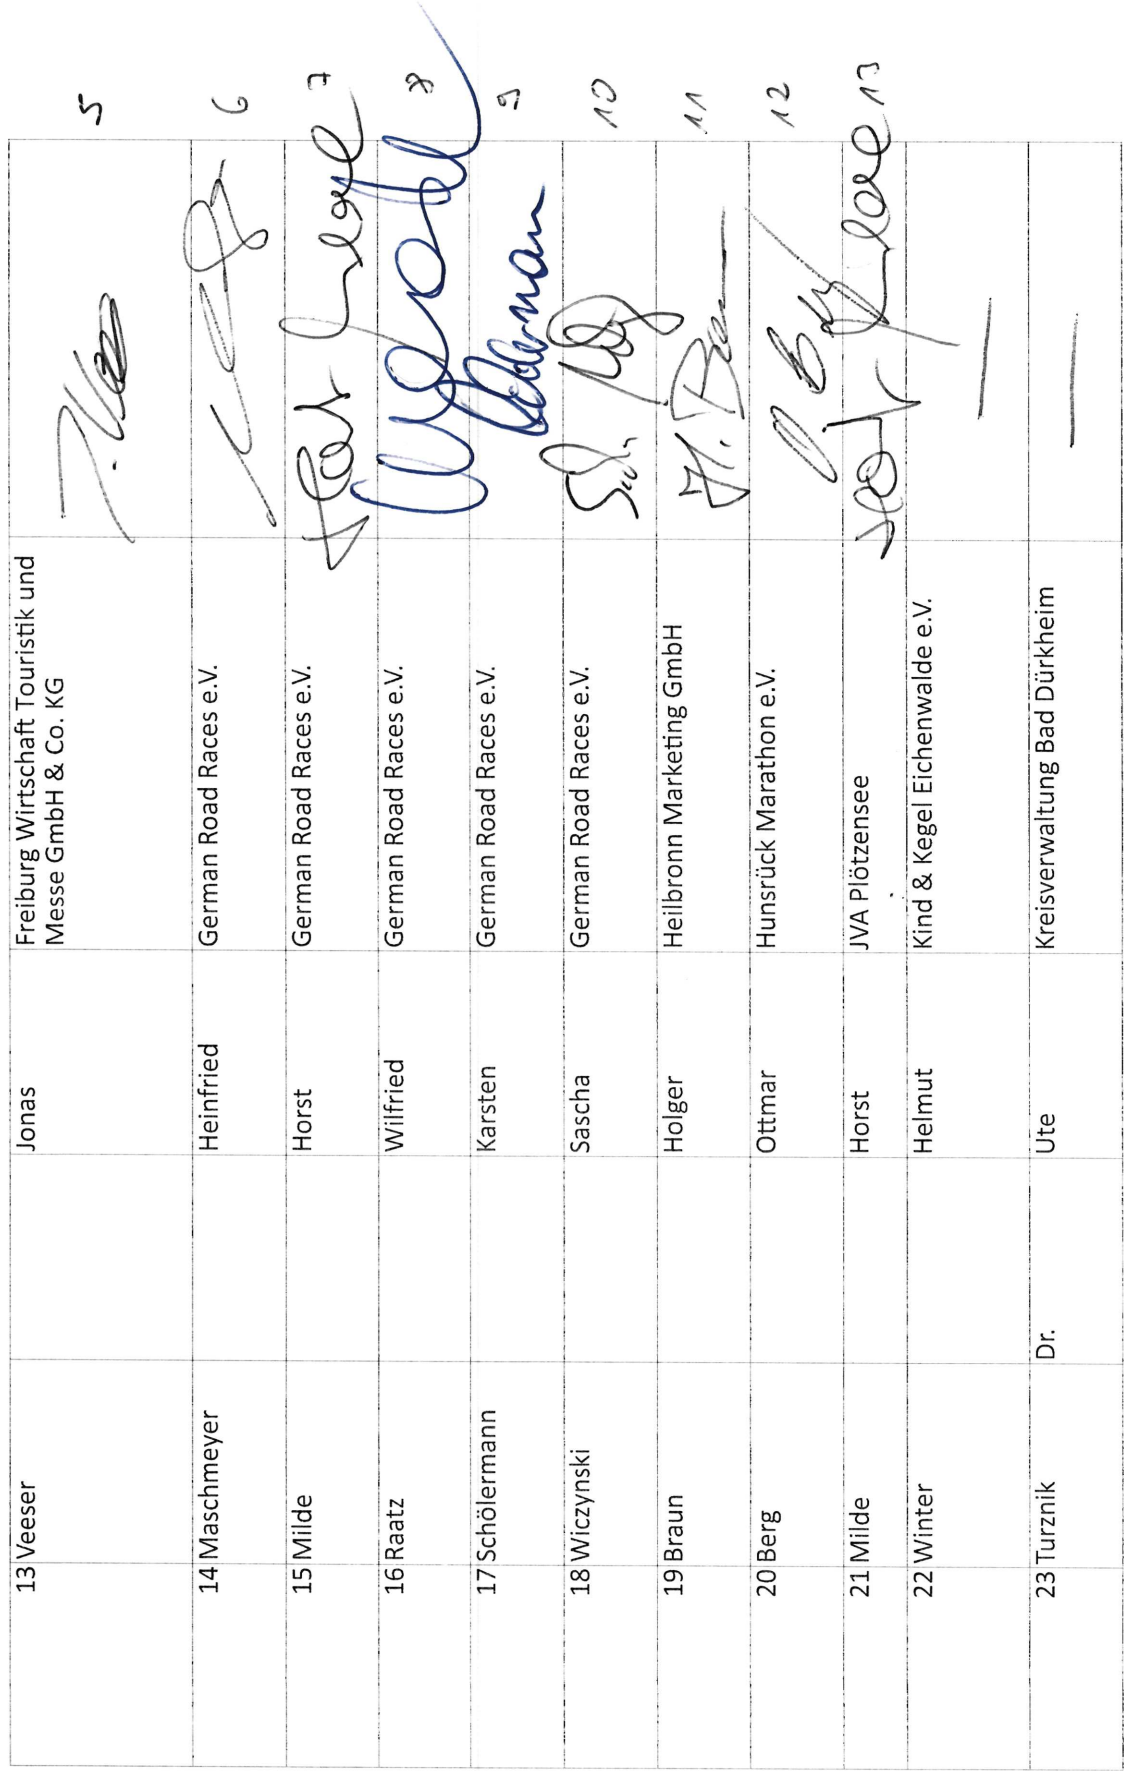 13 Veeser Jonas Freiburg Wirtschaft Touristik und
Messe GmbH & Co. KG 5
14 Maschmeyer Heinfried German Road Races e.V. 6
15 Milde Horst German Road Races e.V. Horst Milde 7
16 Raatz Wilfried German Road Races e.V. 8
17 Schölermann Karsten German Road Races e.V. 9
18 Wiczynski Sascha German Road Races e.V. 10
19 Braun Holger Heilbronn Marketing GmbH H. Braun 11
20 Berg Ottmar Hunsrück Marathon e.V. 12
21 Milde Horst JVA Plötzensee Horst Milde 13
22 Winter Helmut Kind & Kegel Eichenwalde e.V. —
23 Turznik Dr. Ute Kreisverwaltung Bad Dürkheim —